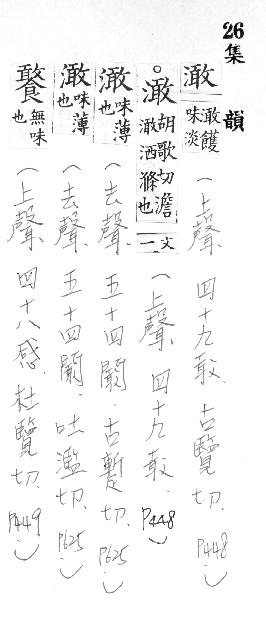 26集 韻
澉 澉𩞑味淡 （上聲、四十九敢、古覽切、P448）
。澉 胡歌切澹澉洒滌也 文一 （上聲、四十九敢、P448）
澉 味薄也 （去聲、五十四闞、古蹔切、P625）
澉 味薄也 （去聲、五十四闞、吐濫切、P625）
𩞑 無味也 （上聲、四十八感、杜覽切、P449）